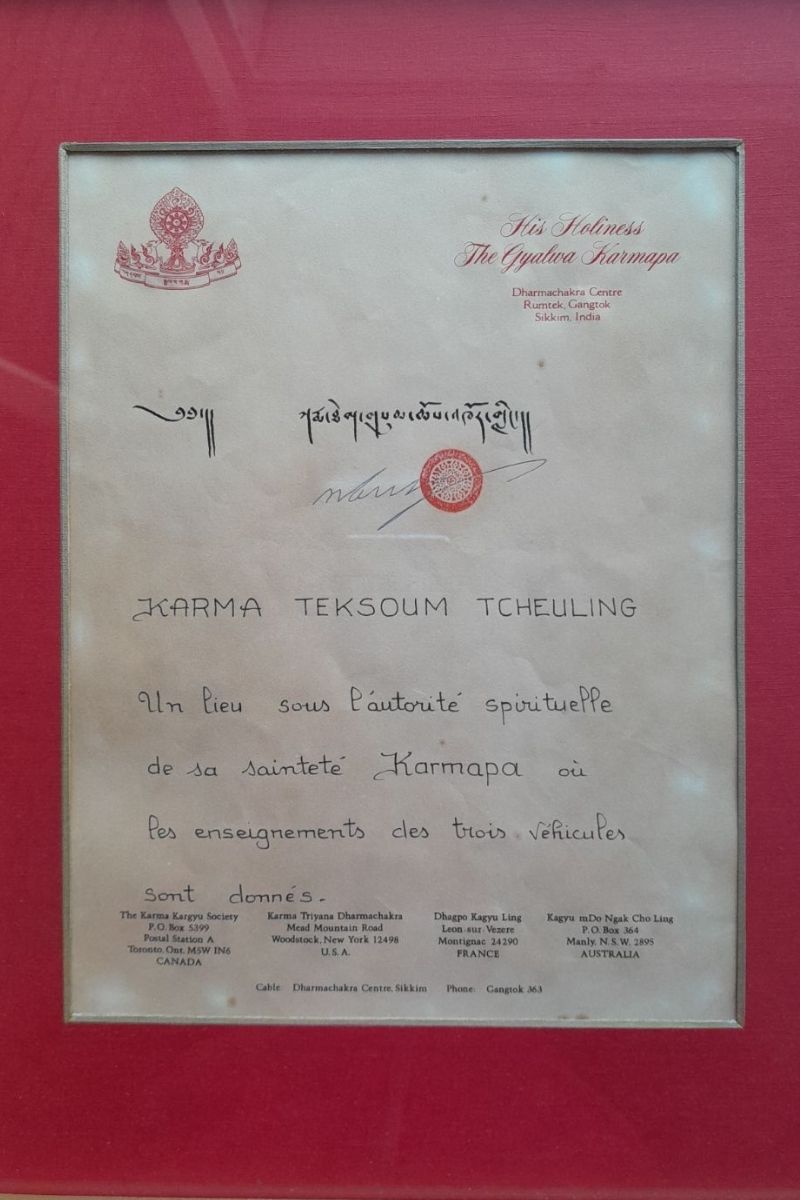 His Holiness
The Gyalwa Karmapa
Dharmachakra Centre
Rumtek, Gangtok
Sikkim, India
KARMA TEKSOUM TCHEULING
Un lieu sous l'autorité spirituelle
de sa sainteté Karmapa où
les enseignements des trois véhicules
sont donnés.
The Karma Kargyu Society
P.O. Box 5399
Postal Station A
Toronto, Ont. M5W IN6
CANADA
Karma Triyana Dharmachakra
Mead Mountain Road
Woodstock, New York 12498
U.S.A.
Dhagpo Kagyu Ling
Leon sur Vezere
Montignac 24290
FRANCE
Kagyu mDo Ngak Cho Ling
P.O. Box 364
Manly, N.S.W. 2895
AUSTRALIA
Cable: Dharmachakra Centre, Sikkim Phone: Gangtok 363